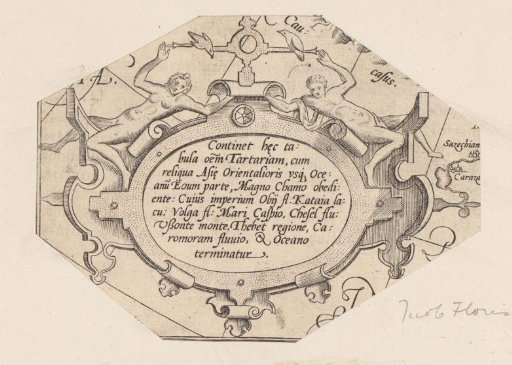 Cau
casus.
TAR
Sarechian
Caraza
Continet hęc ta:
bula oēm Tartariam, cum
reliqua Asię Orientalioris usq̨ Oce:
anū Eoum parte, Magno Chamo obedi
ente: Cuius imperium Obij fl: Kataia la:
cu: Volga fl: Mari Caspio, Chesel flu:
Usonte monte, Thebet regione, Ca:
romoram fluvio, & Oceano
terminatur.
Jacob Floris